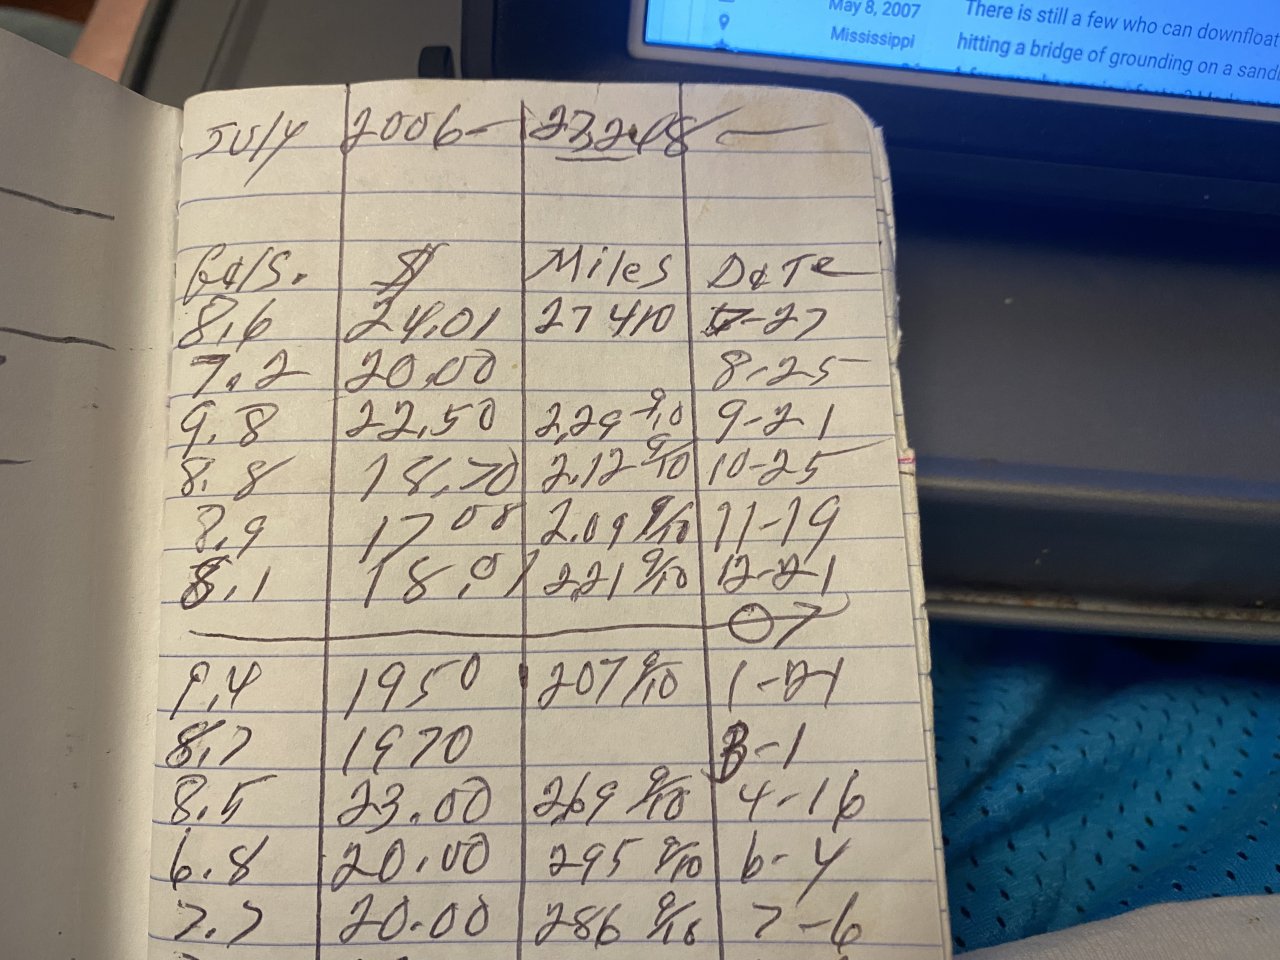 May 8, 2007 There is still a few who can downfloat
Mississippi hitting a bridge of grounding on a sand
JULY 2006- 23,248
Gals. $ Miles DaTe
8.6 24.01 27410 7-27
7.2 20.00 8-25
9.8 22.50 2,29 9/10 9-21
8.8 18.70 2.12 9/10 10-25
8.9 17 08 2.09 9/10 11-19
8.1 18.01 221 9/10 12-21
07
9.4 1950 207 9/10 1-21
8.7 1970 3-1
8.5 23.00 269 9/10 4-16
6.8 20.00 295 9/10 6-4
7.7 20.00 286 9/10 7-6